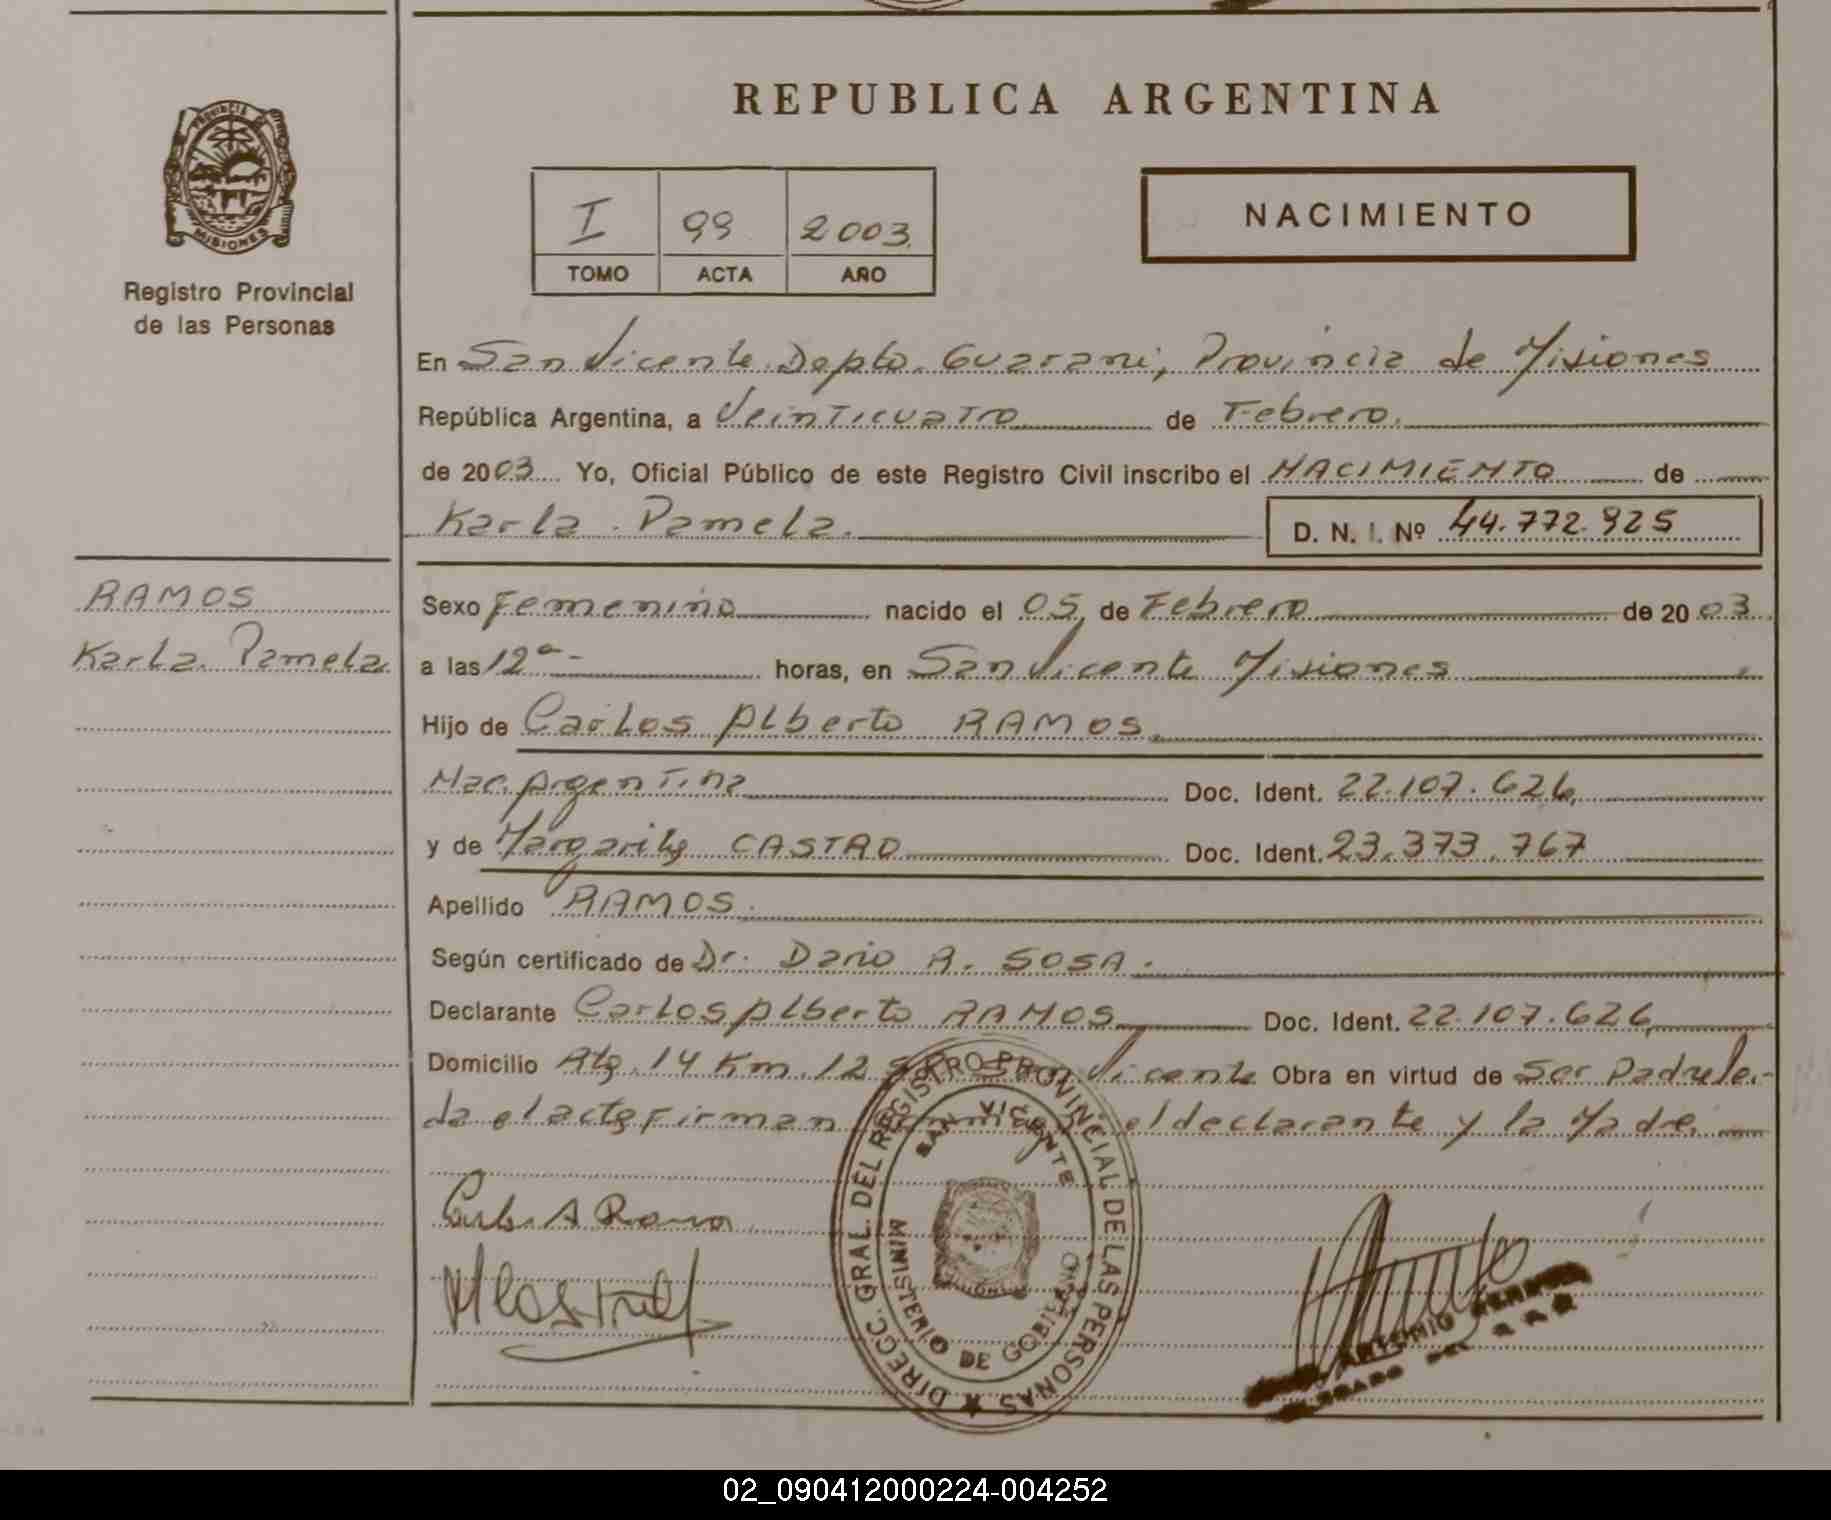 REPUBLICA ARGENTINA
PROVINCIA DE
MISIONES
Registro Provincial
de las Personas
I 99 2003
TOMO ACTA AÑO
NACIMIENTO
En San Vicente Depto. Guarani, Provincia de Misiones
República Argentina, a Veinticuatro de Febrero.
de 2003 Yo, Oficial Público de este Registro Civil inscribo el NACIMIENTO de
Karla Pamela. D. N. I. Nº 44.772.925
RAMOS
Karla Pamela
Sexo Femenino nacido el 05 de Febrero de 2003
a las 12ª- horas, en San Vicente Misiones
Hijo de Carlos Alberto RAMOS
Nac. Argentina Doc. Ident. 22.107.626
y de Margarita CASTRO Doc. Ident. 23.373.767
Apellido RAMOS.
Según certificado de Dr. Dario A. SOSA.
Declarante Carlos Alberto RAMOS Doc. Ident. 22.107.626
Domicilio Rta. 14 Km. 12 San Vicente Obra en virtud de Ser Padre Lei-
da el acta Firman conmigo el declarante y la Madre.
Carlos A Ramos
M Castro
DIRECC. GRAL. DEL REGISTRO PROVINCIAL DE LAS PERSONAS
SAN VICENTE
MINISTERIO DE GOBIERNO
ANTONIO
02_090412000224-004252